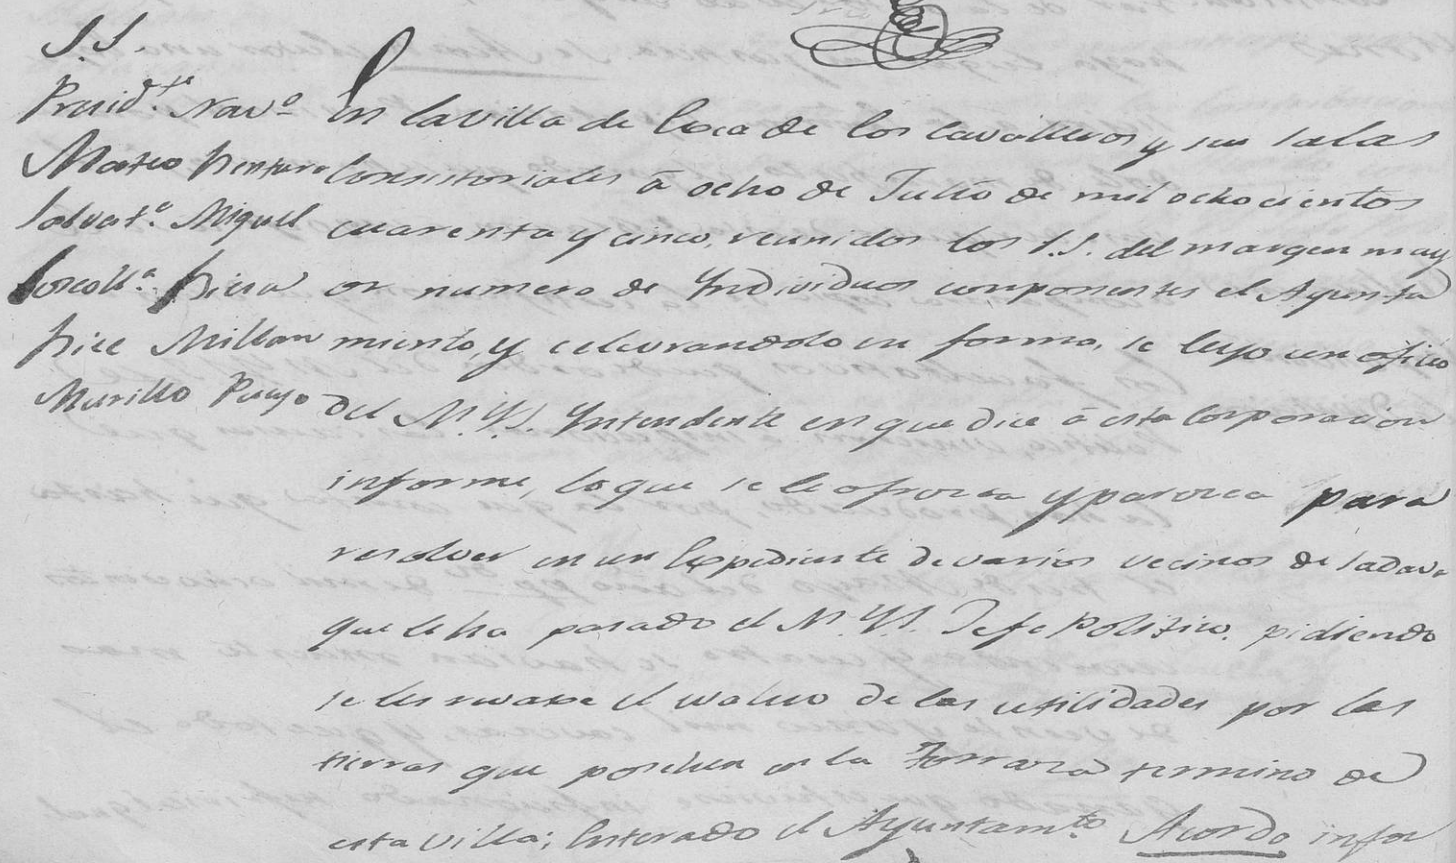 S.S.
Presid.te Nav.o
Mateo Ventura
Salvat.a Miguel
Viece Millan
Murillo Pueyo
En la villa de Exea de los Cavalleros y sus salas
Consistoriales á ocho de Julio de mil ochocientos
cuarenta y cinco, reunidos los S.S. del margen may
or numero de Yndividuos componentes el Ayunta
miento, y celevrandolo en forma, se leyo un oficio
del M.Y.S. Yntendente en que dice á esta Corporacion
informe, lo que se le ofrezca y parezca para
resolver en un Expediente de varios vecinos de Sadava
que le ha pasado el M.Y.S. Jefe Politico, pidiendo
se les revaxe el valuo de las utilidades por las
tierras que posehen en la termino de
esta villa; Enterado el Ayuntam.to Acordo infor